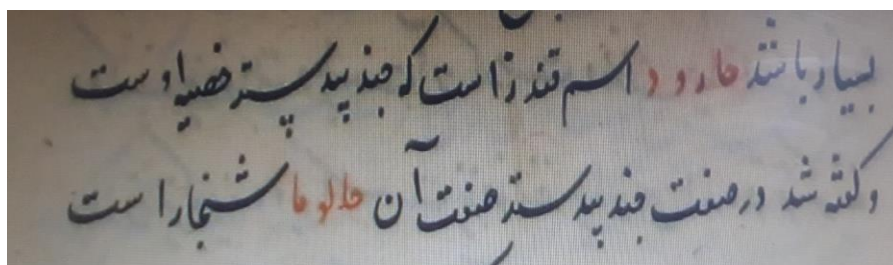 بسیار باشد حارود اسم قندز است که جند بیدستر خصیه اوست
و گفته شد در صفت جند بیدستر صفت آن حالوما شنجار است